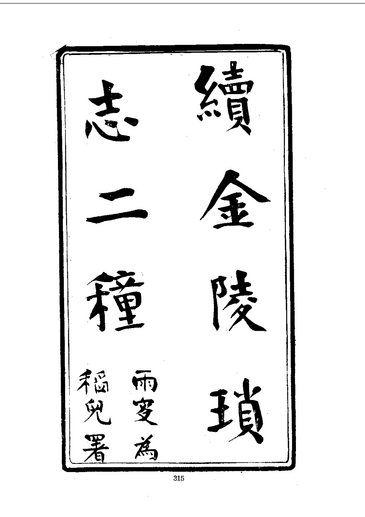 續金陵瑣
志二穜
雨叟為
稻兒署
315